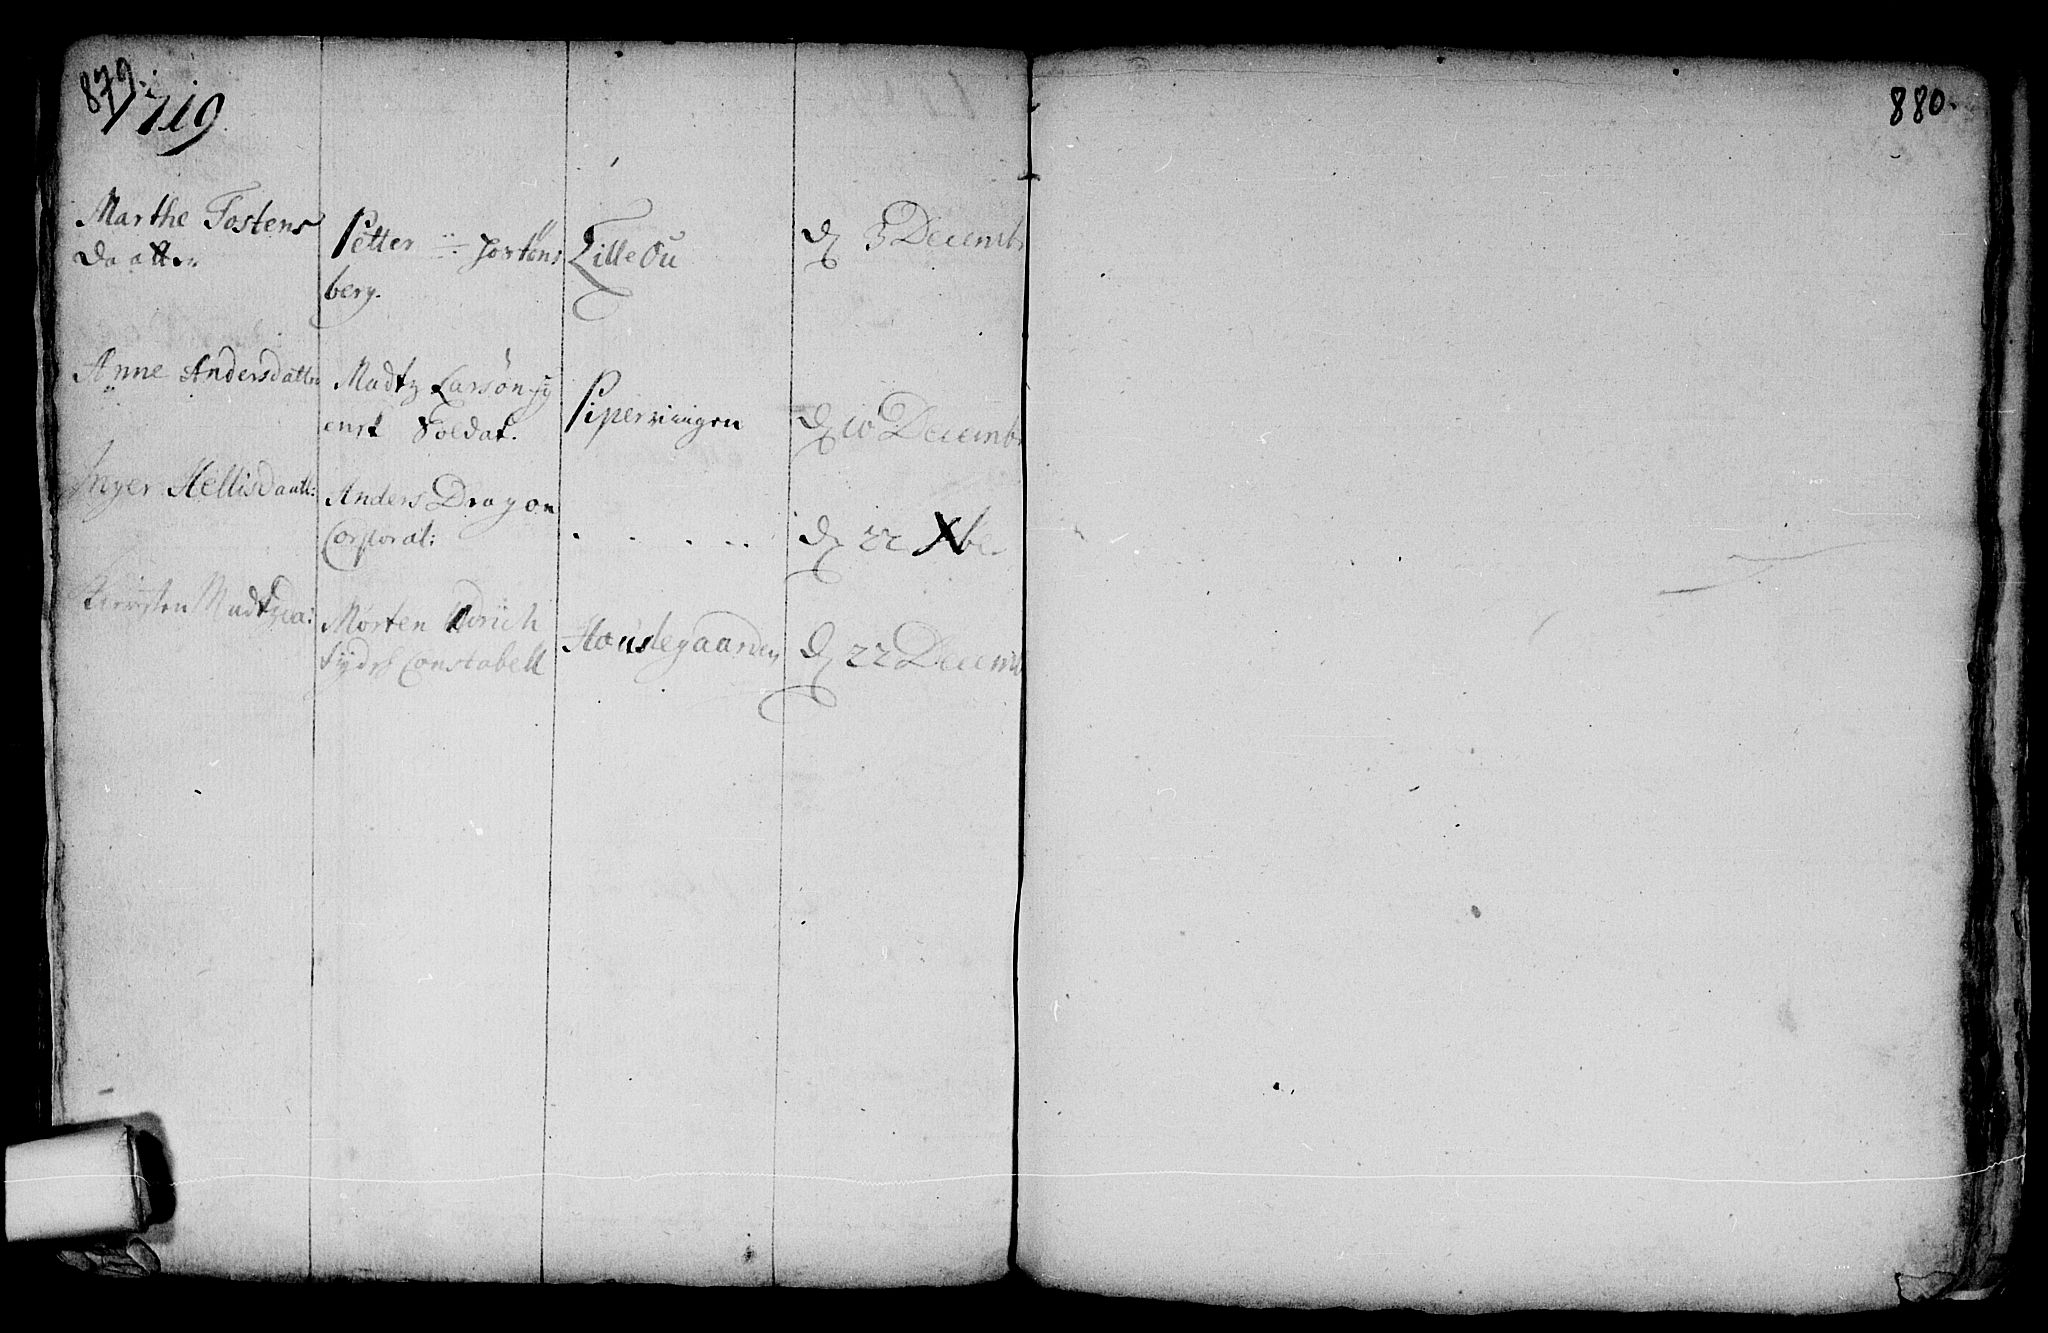 879.
1719
880.
Marthe Tostens
daatter
Petter
berg.
Lilleöu
d 3 Decemb
Anne Andersdatter
Madtz Larsön
Soldat.
Piperviiigen
d 10 Decemb
Inger Hellisdaatt:
Anders Dragon
Corporal:
. . . . .
d 22 Xbe
Kiersten Madtzda:
Morten
Constabell
Houslegaarden
d 22 Decemb